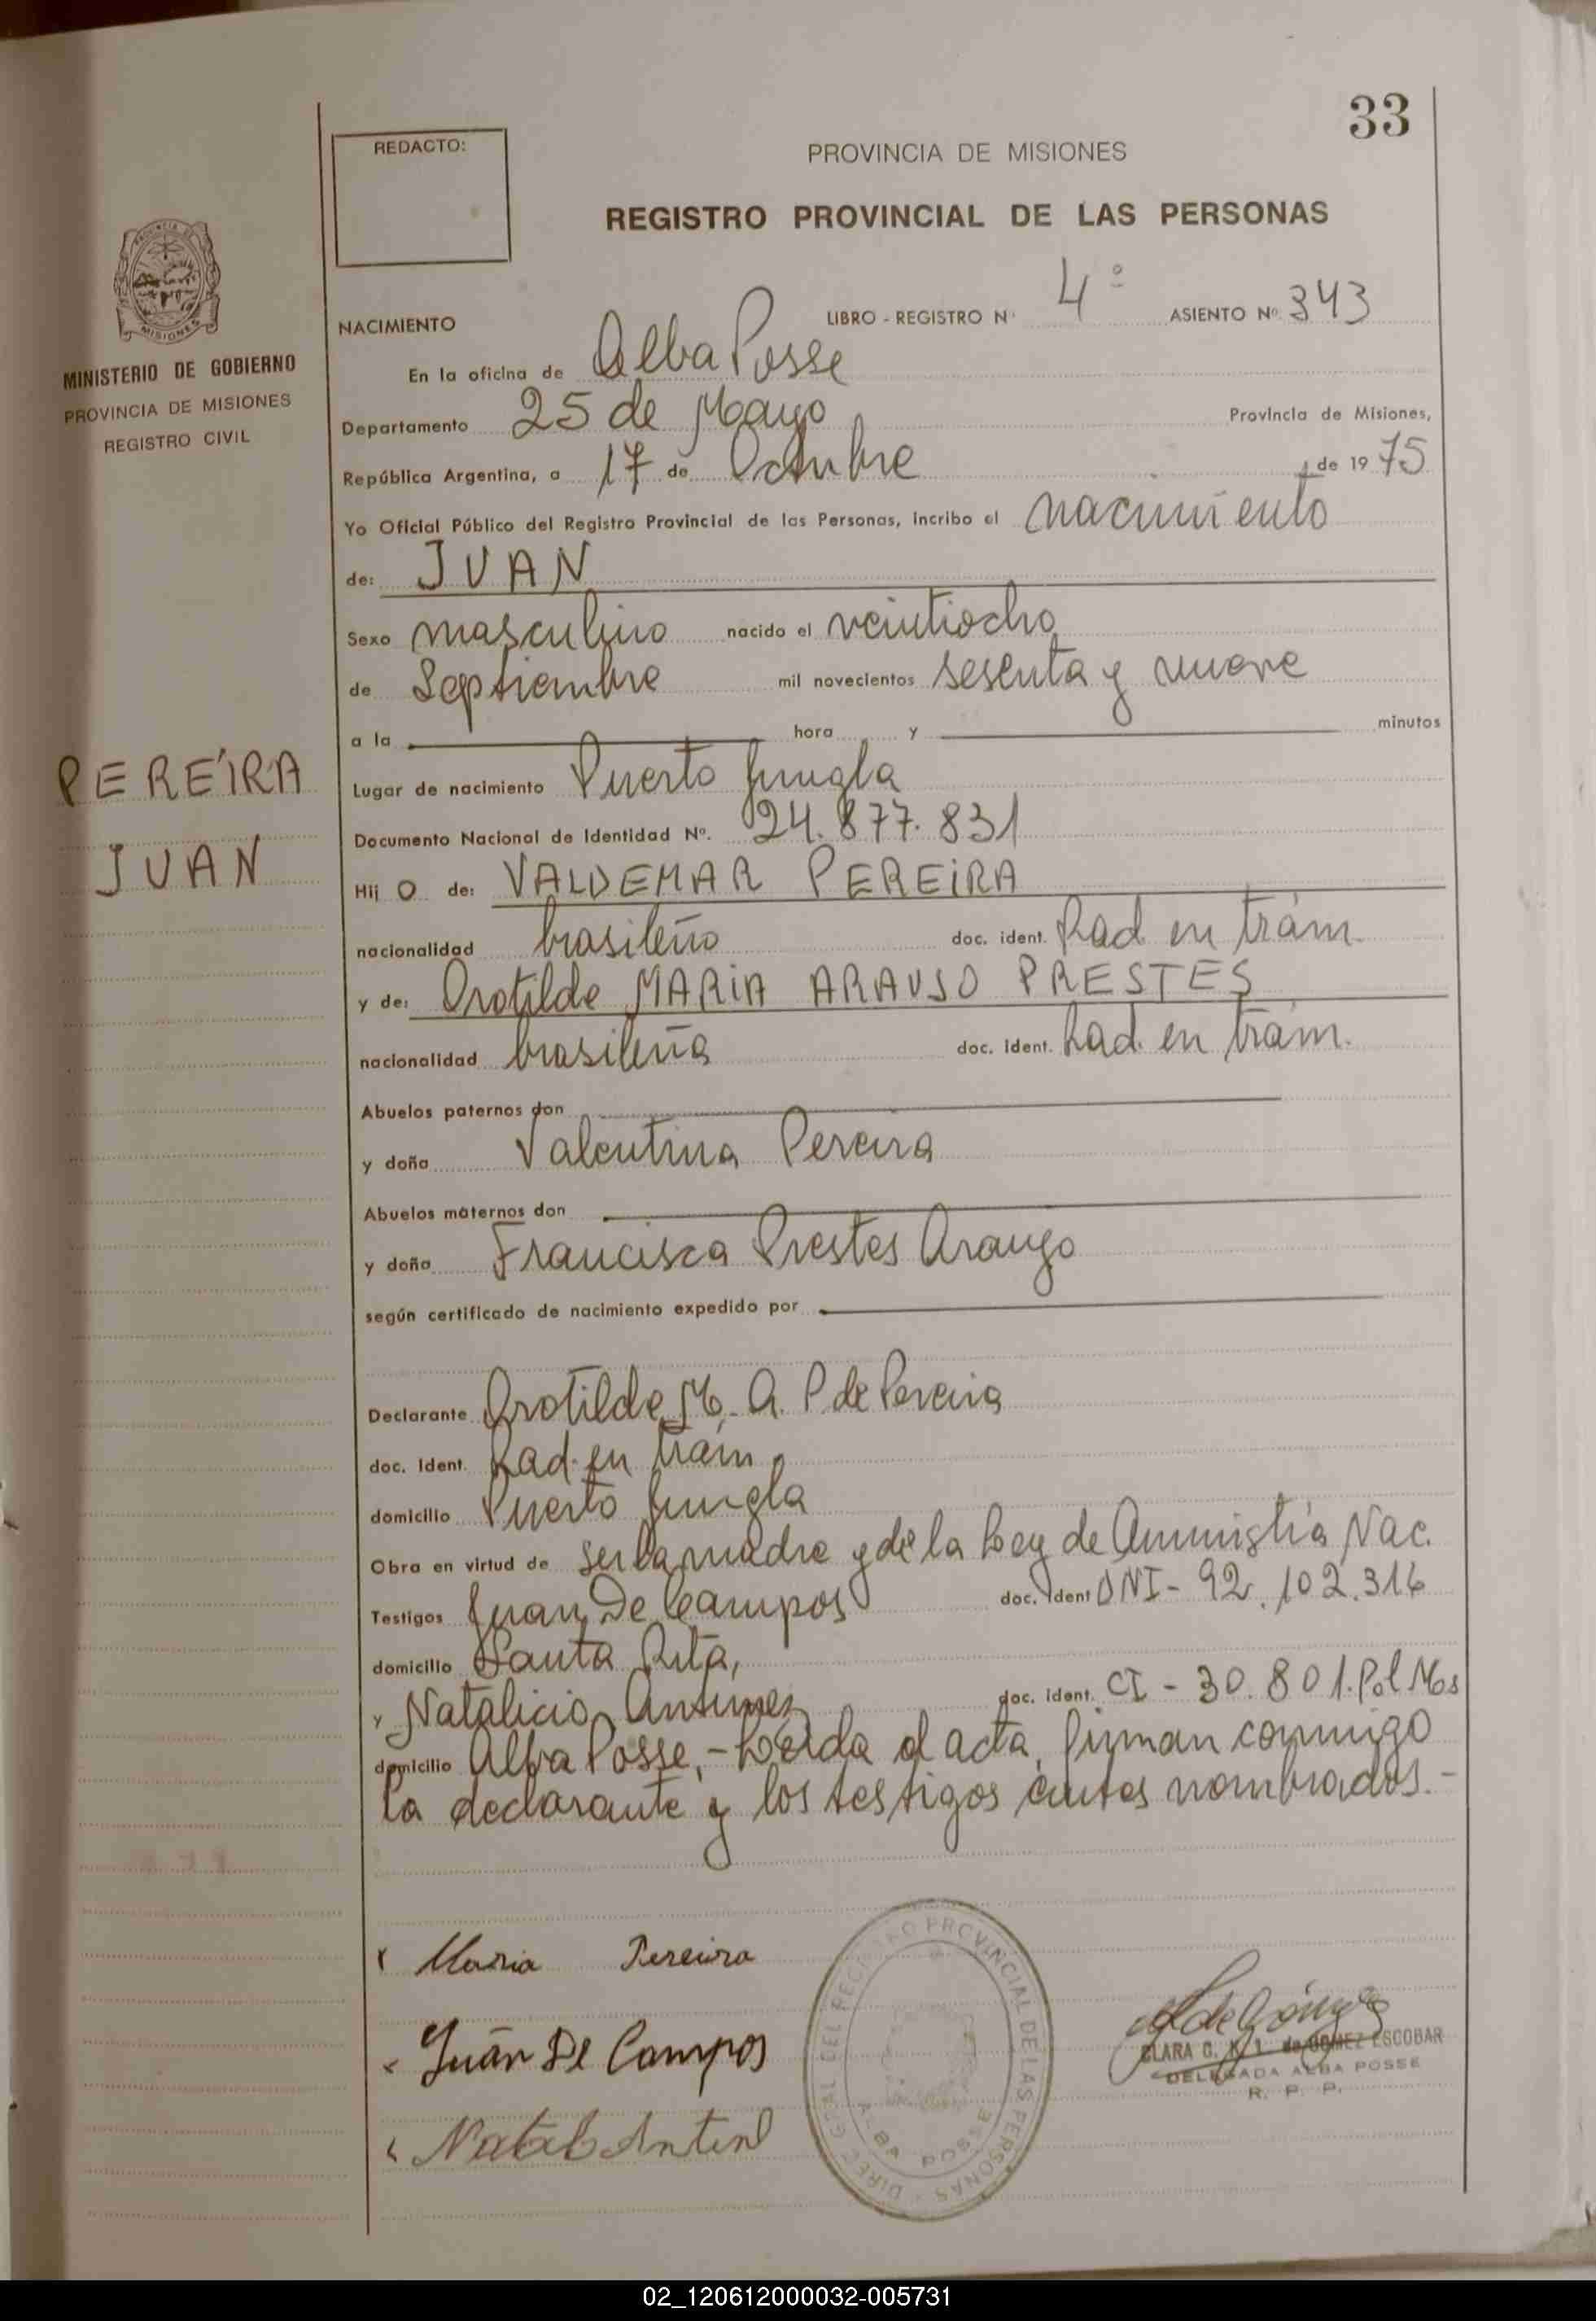 33
REDACTO:
PROVINCIA DE MISIONES
REGISTRO PROVINCIAL DE LAS PERSONAS
MISIONES
MINISTERIO DE GOBIERNO
PROVINCIA DE MISIONES
REGISTRO CIVIL
NACIMIENTO LIBRO - REGISTRO Nº 4º ASIENTO Nº 343
En la oficina de Alba Posse
Departamento 25 de Mayo Provincia de Misiones,
República Argentina, a 17 de Octubre de 1975
Yo Oficial Público del Registro Provincial de las Personas, incribo el nacimiento
de: JUAN
Sexo masculino nacido el veintiocho
de Septiembre mil novecientos sesenta y nueve
a la hora y minutos
PEREIRA
JUAN
Lugar de nacimiento Puerto Jungla
Documento Nacional de Identidad Nº. 24.877.831
Hij o de: VALDEMAR PEREIRA
nacionalidad brasileño doc. ident. Rad en trám.
y de: Orotilde MARIA ARAUJO PRESTES
nacionalidad brasileña doc. ident. Rad. en trám.
Abuelos paternos don
y doña Valentina Pereira
Abuelos maternos don
y doña Francisca Prestes Araujo
según certificado de nacimiento expedido por
Declarante Orotilde M. A. P. de Pereira
doc. Ident. Rad. en trám.
domicilio Puerto Jungla
Obra en virtud de ser la madre y de la Ley de Amnistía Nac.
Testigos Juan De Campos doc. Ident DNI - 92.102.316
domicilio Santa Rita,
y Natalicio Antunez doc. ident. CI - 30.801. Pol Mos
domicilio Alba Posse.- Leída el acta, firman conmigo
la declarante y los testigos antes nombrados.-
Maria Pereira
Juan De Campos
DIREC. GRAL DEL REGISTRO PROVINCIAL DE LAS PERSONAS
ALBA POSSE
de Gómez
CLARA C. K. de GOMEZ ESCOBAR
DELEGADA ALBA POSSE
R. P. P.
02_120612000032-005731